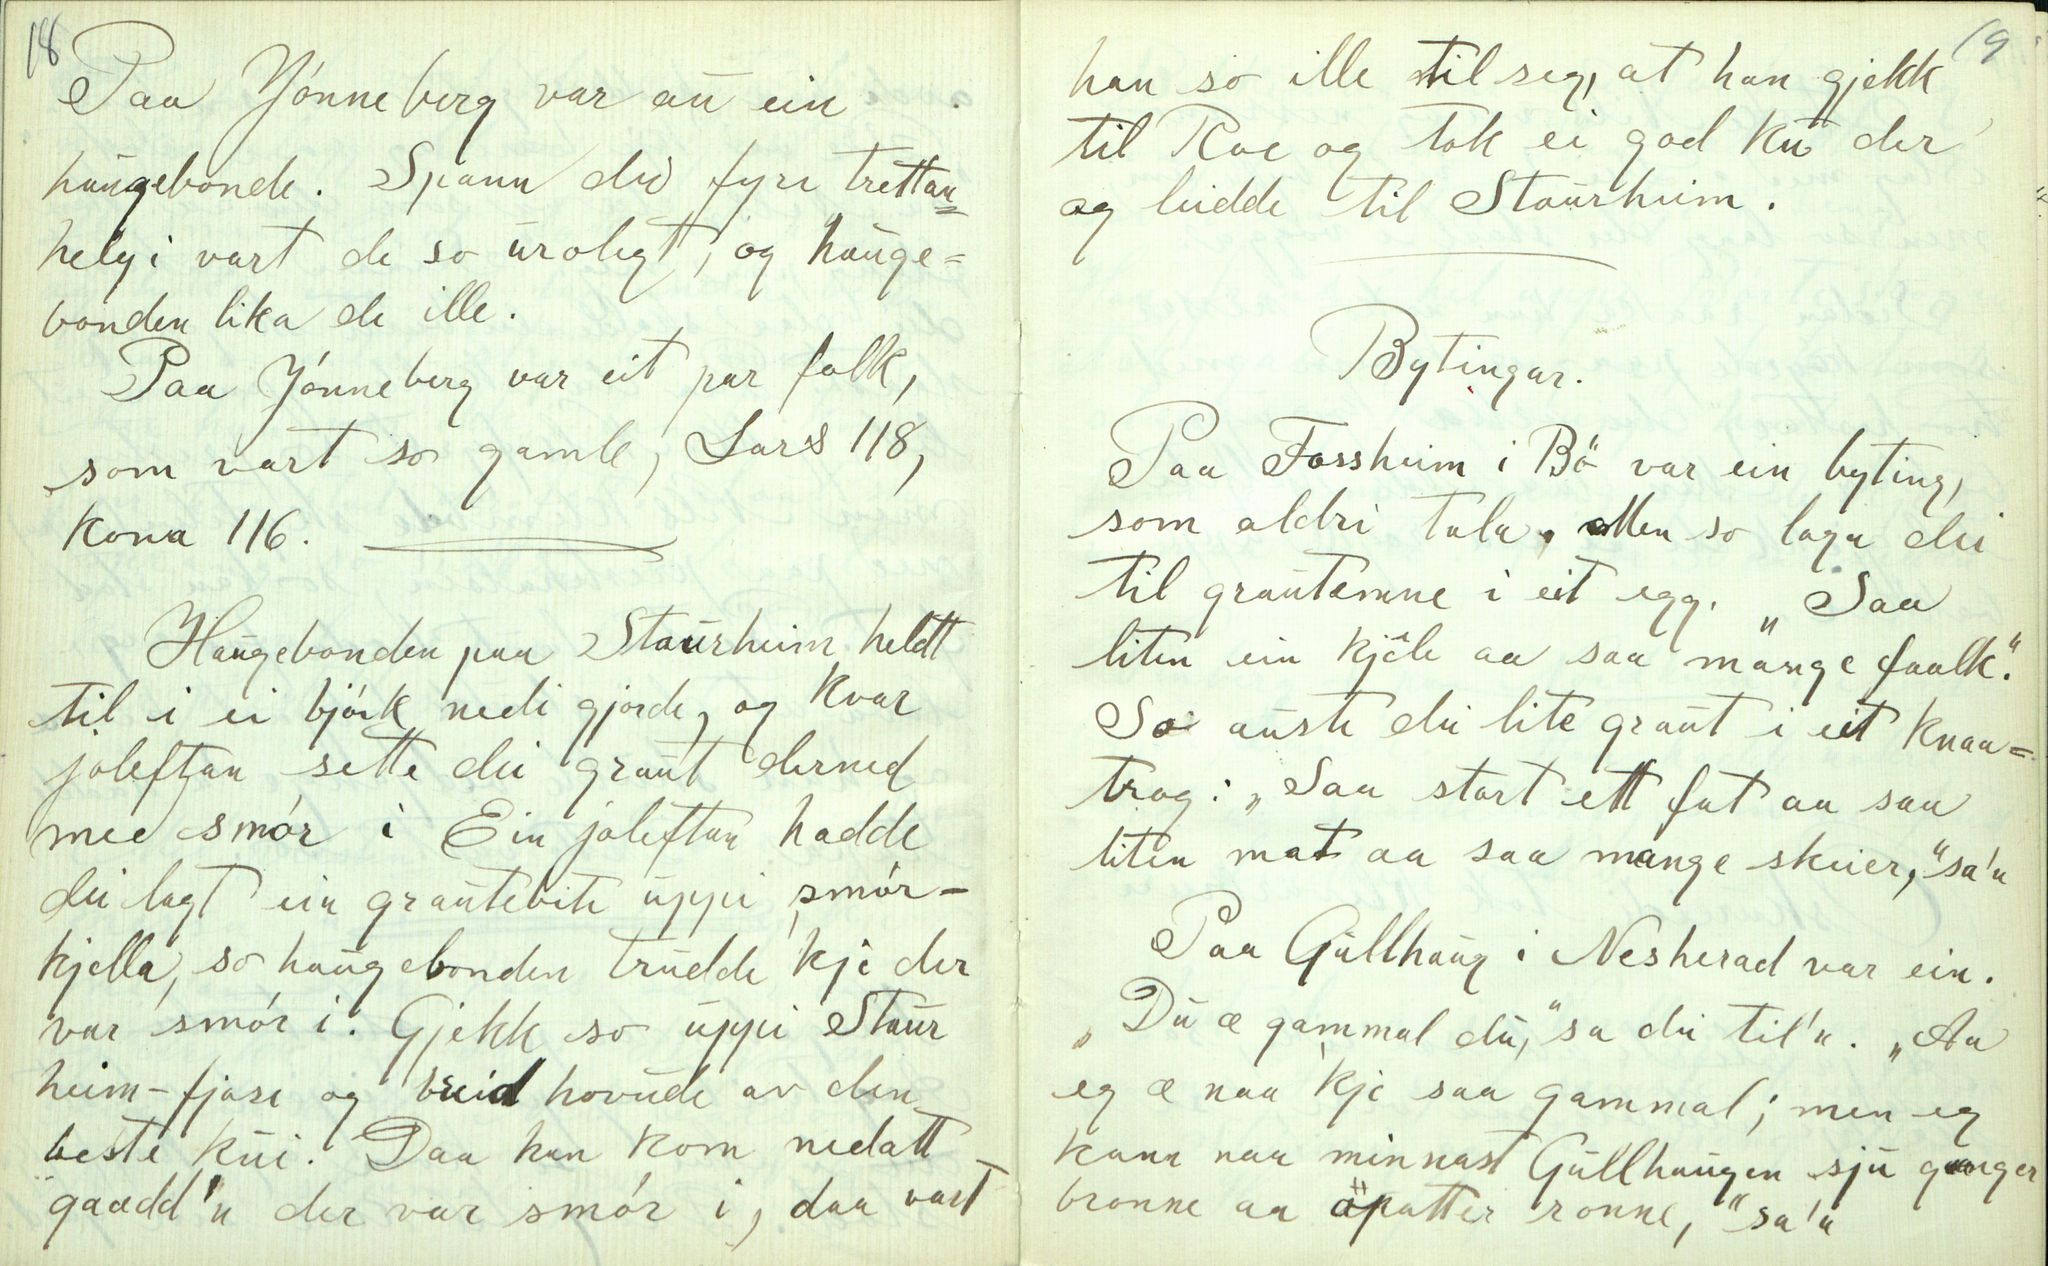 18
Paa Yónneberg var au ein
haugebonde. Spann dei fyre trettan=
helgi vart de so uroligt, og hauge=
bonden lika de ille.
Paa Yónneberg var eit par folk,
som vart so gamle, Lars 118,
kona 116.
Haugebonden paa Staurheim heldt
til i ei bjórk nedi gjorde, og kvar
joleftan sette dei graut derned
med smór i Ein joleftan hadde
dei lagt ein grautebite uppi smór-
kjella, so haugebonden trudde kje der
var smór i. Gjekk so uppi Staur
heim-fjose og vreid hovude av den
beste kui. Daa han kom nedatt
gaadd'n der var smór i, daa vart
19
han so ille til seg, at han gjekk
til Roe og tok ei god ku der
og leidde til Staurheim.
Bytingar.
Paa Fossheim i Bö var ein byting,
som aldri tala. Men so laga dei
til grautemne i eit egg. „Saa
liten ein kjêle aa saa mange faalk."
So auste dei lite graut i eit knaa=
trog: „Saa stort ett fat aa saa
liten mat aa saa mange skeier," sa'n
Paa Gullhaug i Nesherad var ein.
„Du æ gammal du," sa dei til'n. „Aa
eg æ naa kje saa gammal; men eg
kann naa minnast Gullhaugen sju gonger
bronne aa öpatter ronne," sa'n